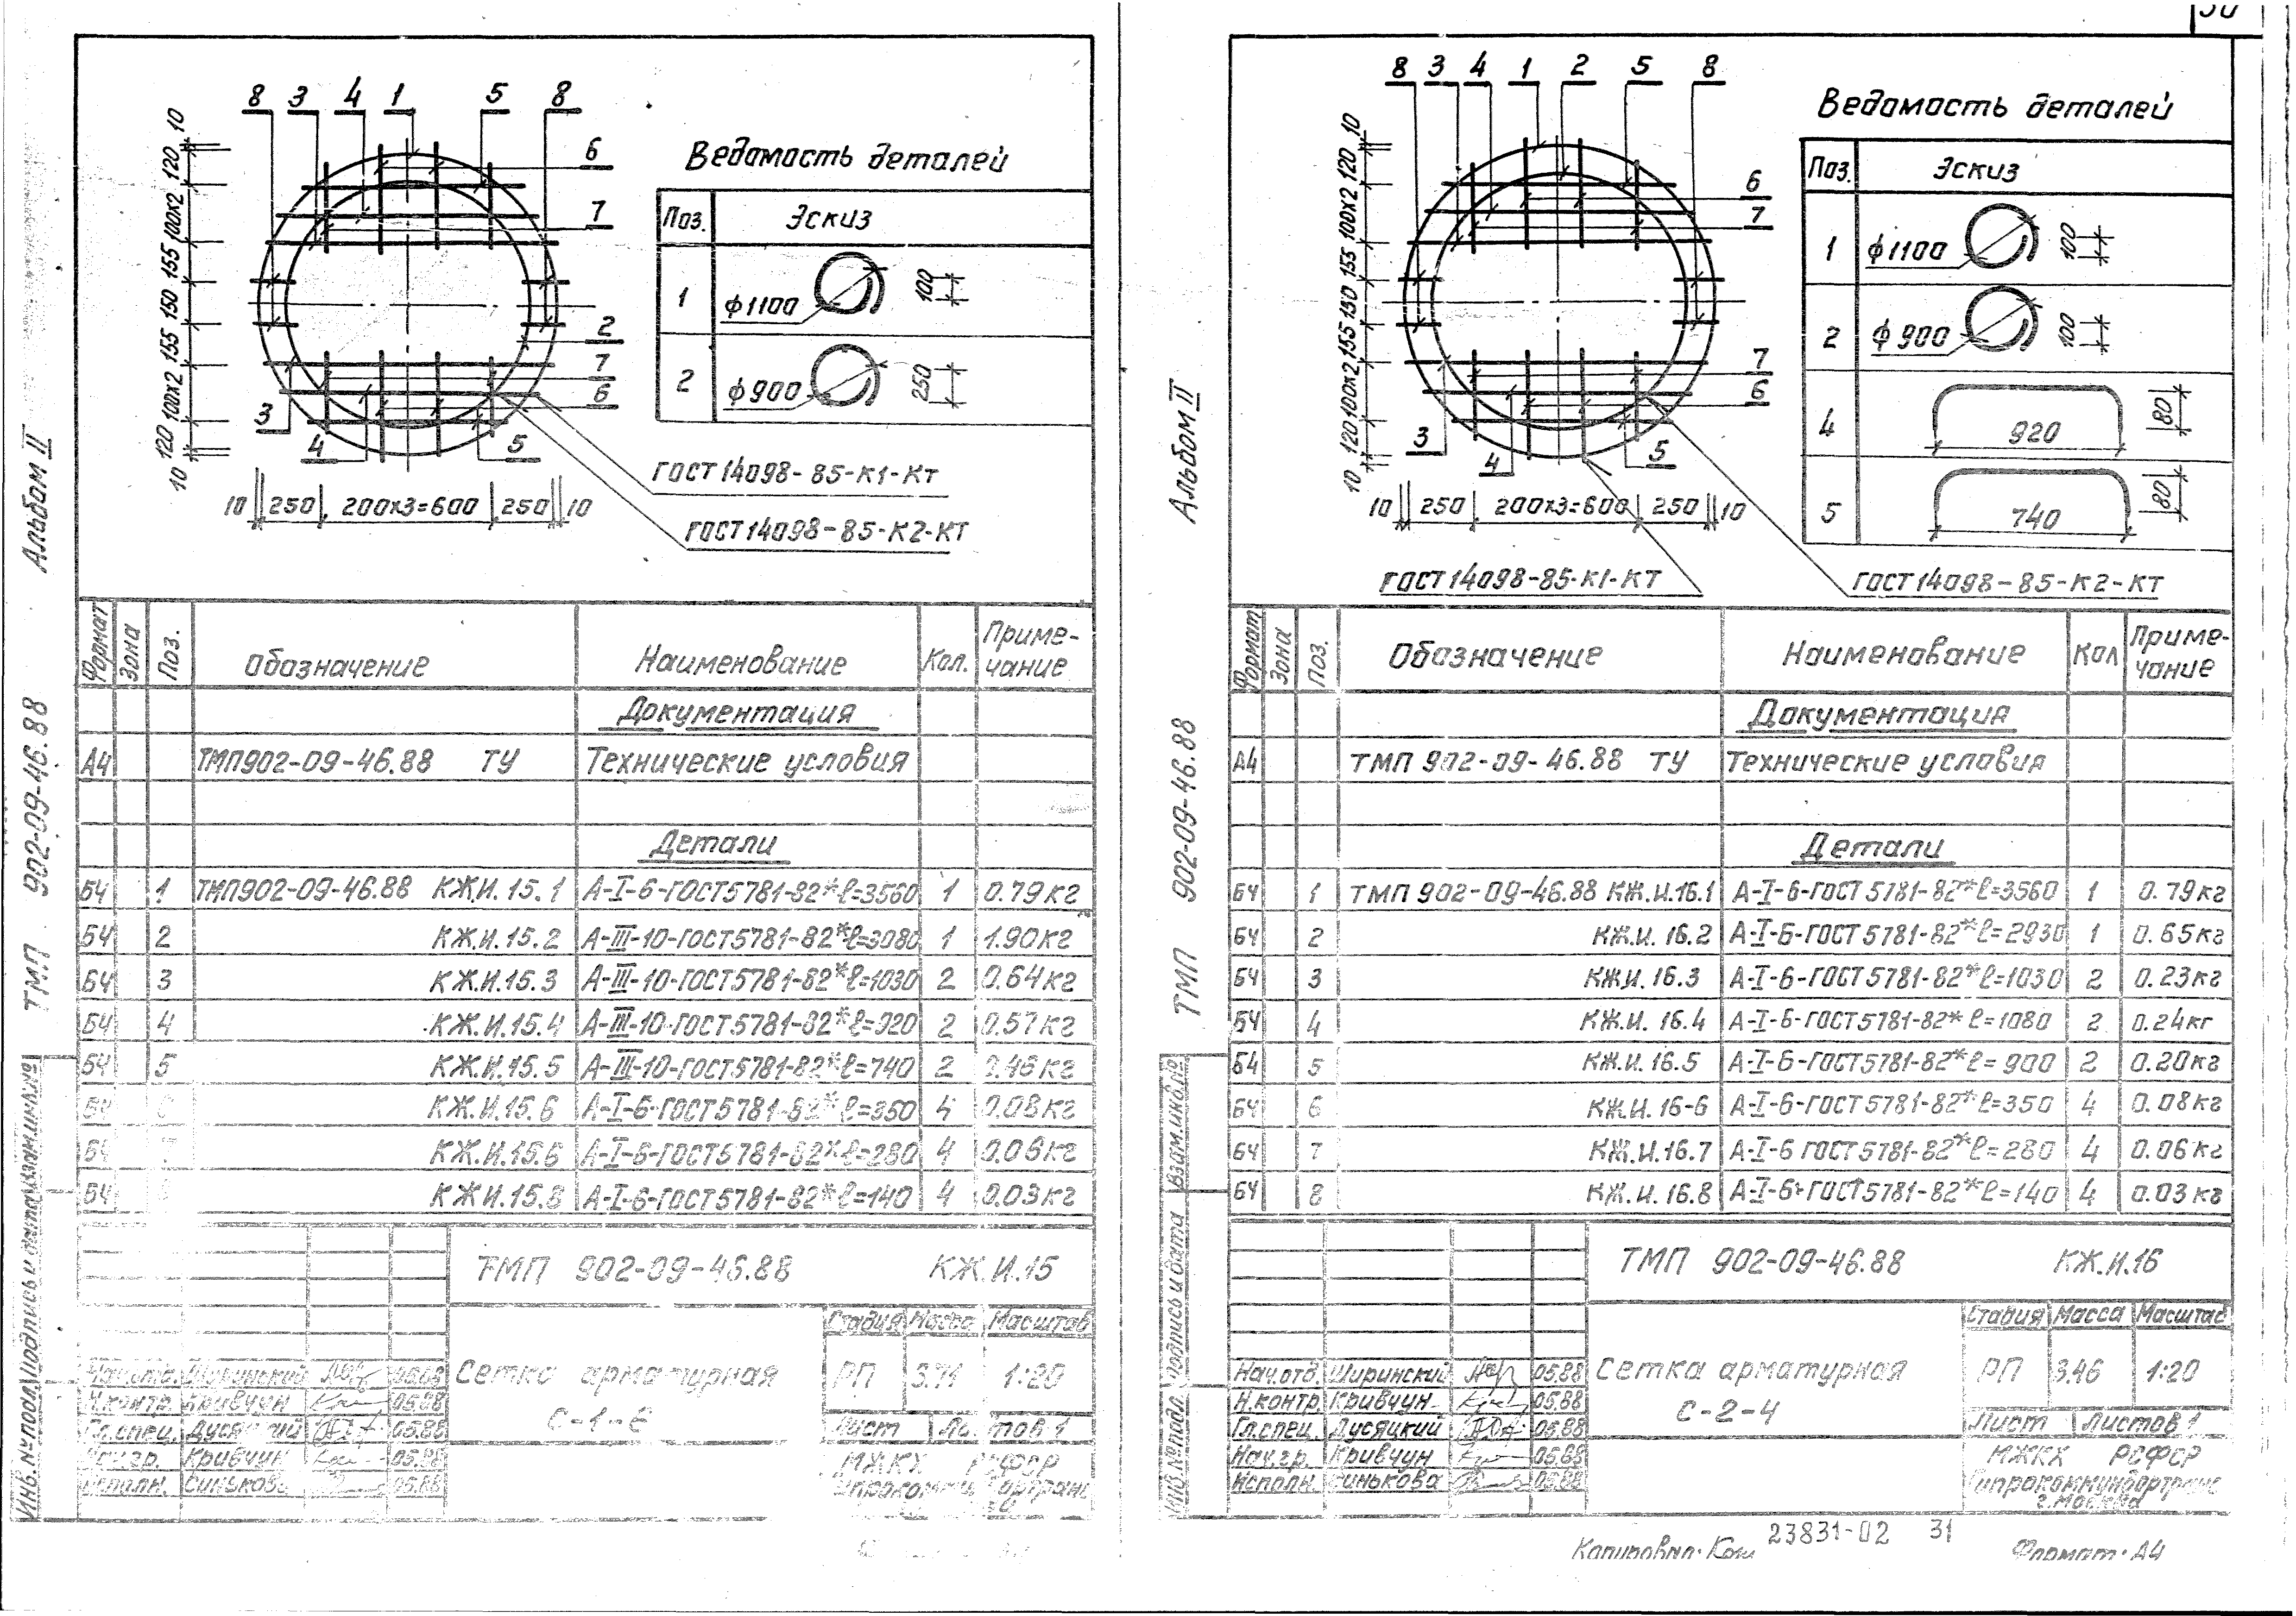 Альбом II
ТМП 902-09-46.88
Инв.№подл. Подпись и дата Взам.инв.№
8 3 4 1 5 8
6
7
2
7
6
3
4
5
10 120 100х2 155 150 155 100х2 120 10
10 250 200х3=600 250 10
ГОСТ 14098-85-К1-Кт
ГОСТ 14098-85-К2-КТ
Ведомость деталей
Поз. Эскиз
1 ф1100 100
2 ф900 250
Формат Зона Поз. Обозначение Наименование Кол. Приме-
чание
Документация
А4 ТМП902-09-46.88 ТУ Технические условия
Детали
БЧ 1 ТМП902-09-46.88 КЖ.И.15.1 А-I-6-ГОСТ5781-82* ℓ=3560 1 0.79кг
БЧ 2 КЖ.И.15.2 А-III-10-ГОСТ5781-82* ℓ=3080 1 1.90кг
БЧ 3 КЖ.И.15.3 А-III-10-ГОСТ5781-82* ℓ=1030 2 0.64кг
БЧ 4 КЖ.И.15.4 А-III-10-ГОСТ5781-82* ℓ=920 2 0.57кг
БЧ 5 КЖ.И.15.5 А-III-10-ГОСТ5781-82* ℓ=740 2 0.46кг
БЧ КЖ.И.15.6 А-I-6-ГОСТ5781-82* ℓ=350 4 0.08кг
БЧ 7 КЖ.И.15.6 А-I-6-ГОСТ5781-82* ℓ=280 4 0.06кг
БЧ КЖ.И.15.8 А-I-6-ГОСТ5781-82* ℓ=140 4 0.03кг
ТМП 902-09-46.88 КЖ.И.15
Стадия Масса Масштаб
Нач.отд. Ширинский 05.88 Сетка арматурная РП 3.71 1:20
Н.контр. Кривчун 05.88 С-1-6
Гл.спец. Дусяцкий 05.88 Лист Листов 1
Нач.гр. Кривчун 05.88 МЖКХ РСФСР
Исполн. Синькова 05.88
30
Альбом II
ТМП 902-09-46.88
Инв.№подл. Подпись и дата Взам.инв.№
8 3 4 1 2 5 8
6
7
7
6
3
4
5
10 120 100х2 155 150 155 100х2 120 10
10 250 200х3=600 250 10
ГОСТ 14098-85-К1-КТ
ГОСТ 14098-85-К2-КТ
Ведомость деталей
Поз. Эскиз
1 ф1100 100
2 ф900 100
4 920 80
5 740 80
Формат Зона Поз. Обозначение Наименование Кол Приме-
чание
Документация
А4 ТМП 902-09-46.88 ТУ Технические условия
Детали
БЧ 1 ТМП 902-09-46.88 КЖ.И.16.1 А-I-6-ГОСТ5781-82* ℓ=3560 1 0.79кг
БЧ 2 КЖ.И.16.2 А-I-6-ГОСТ5781-82* ℓ=2930 1 0.65кг
БЧ 3 КЖ.И.16.3 А-I-6-ГОСТ5781-82* ℓ=1030 2 0.23кг
БЧ 4 КЖ.И.16.4 А-I-6-ГОСТ5781-82* ℓ=1080 2 0.24кг
БЧ 5 КЖ.И.16.5 А-I-6-ГОСТ5781-82* ℓ=900 2 0.20кг
БЧ 6 КЖ.И.16-6 А-I-6-ГОСТ5781-82* ℓ=350 4 0.08кг
БЧ 7 КЖ.И.16.7 А-I-6 ГОСТ5781-82* ℓ=280 4 0.06кг
БЧ 8 КЖ.И.16.8 А-I-6-ГОСТ5781-82* ℓ=140 4 0.03кг
ТМП 902-09-46.88 КЖ.И.16
Стадия Масса Масштаб
Нач.отд. Ширинский 05.88 Сетка арматурная РП 3.46 1:20
Н.контр. Кривчун 05.88 С-2-4
Гл.спец. Дусяцкий 05.88 Лист Листов 1
Нач.гр. Кривчун 05.88 МЖКХ РСФСР
Исполн. Синькова 05.88 Гипрокоммундортранс
г.Москва
Копировал: 23831-02 31 Формат: А4